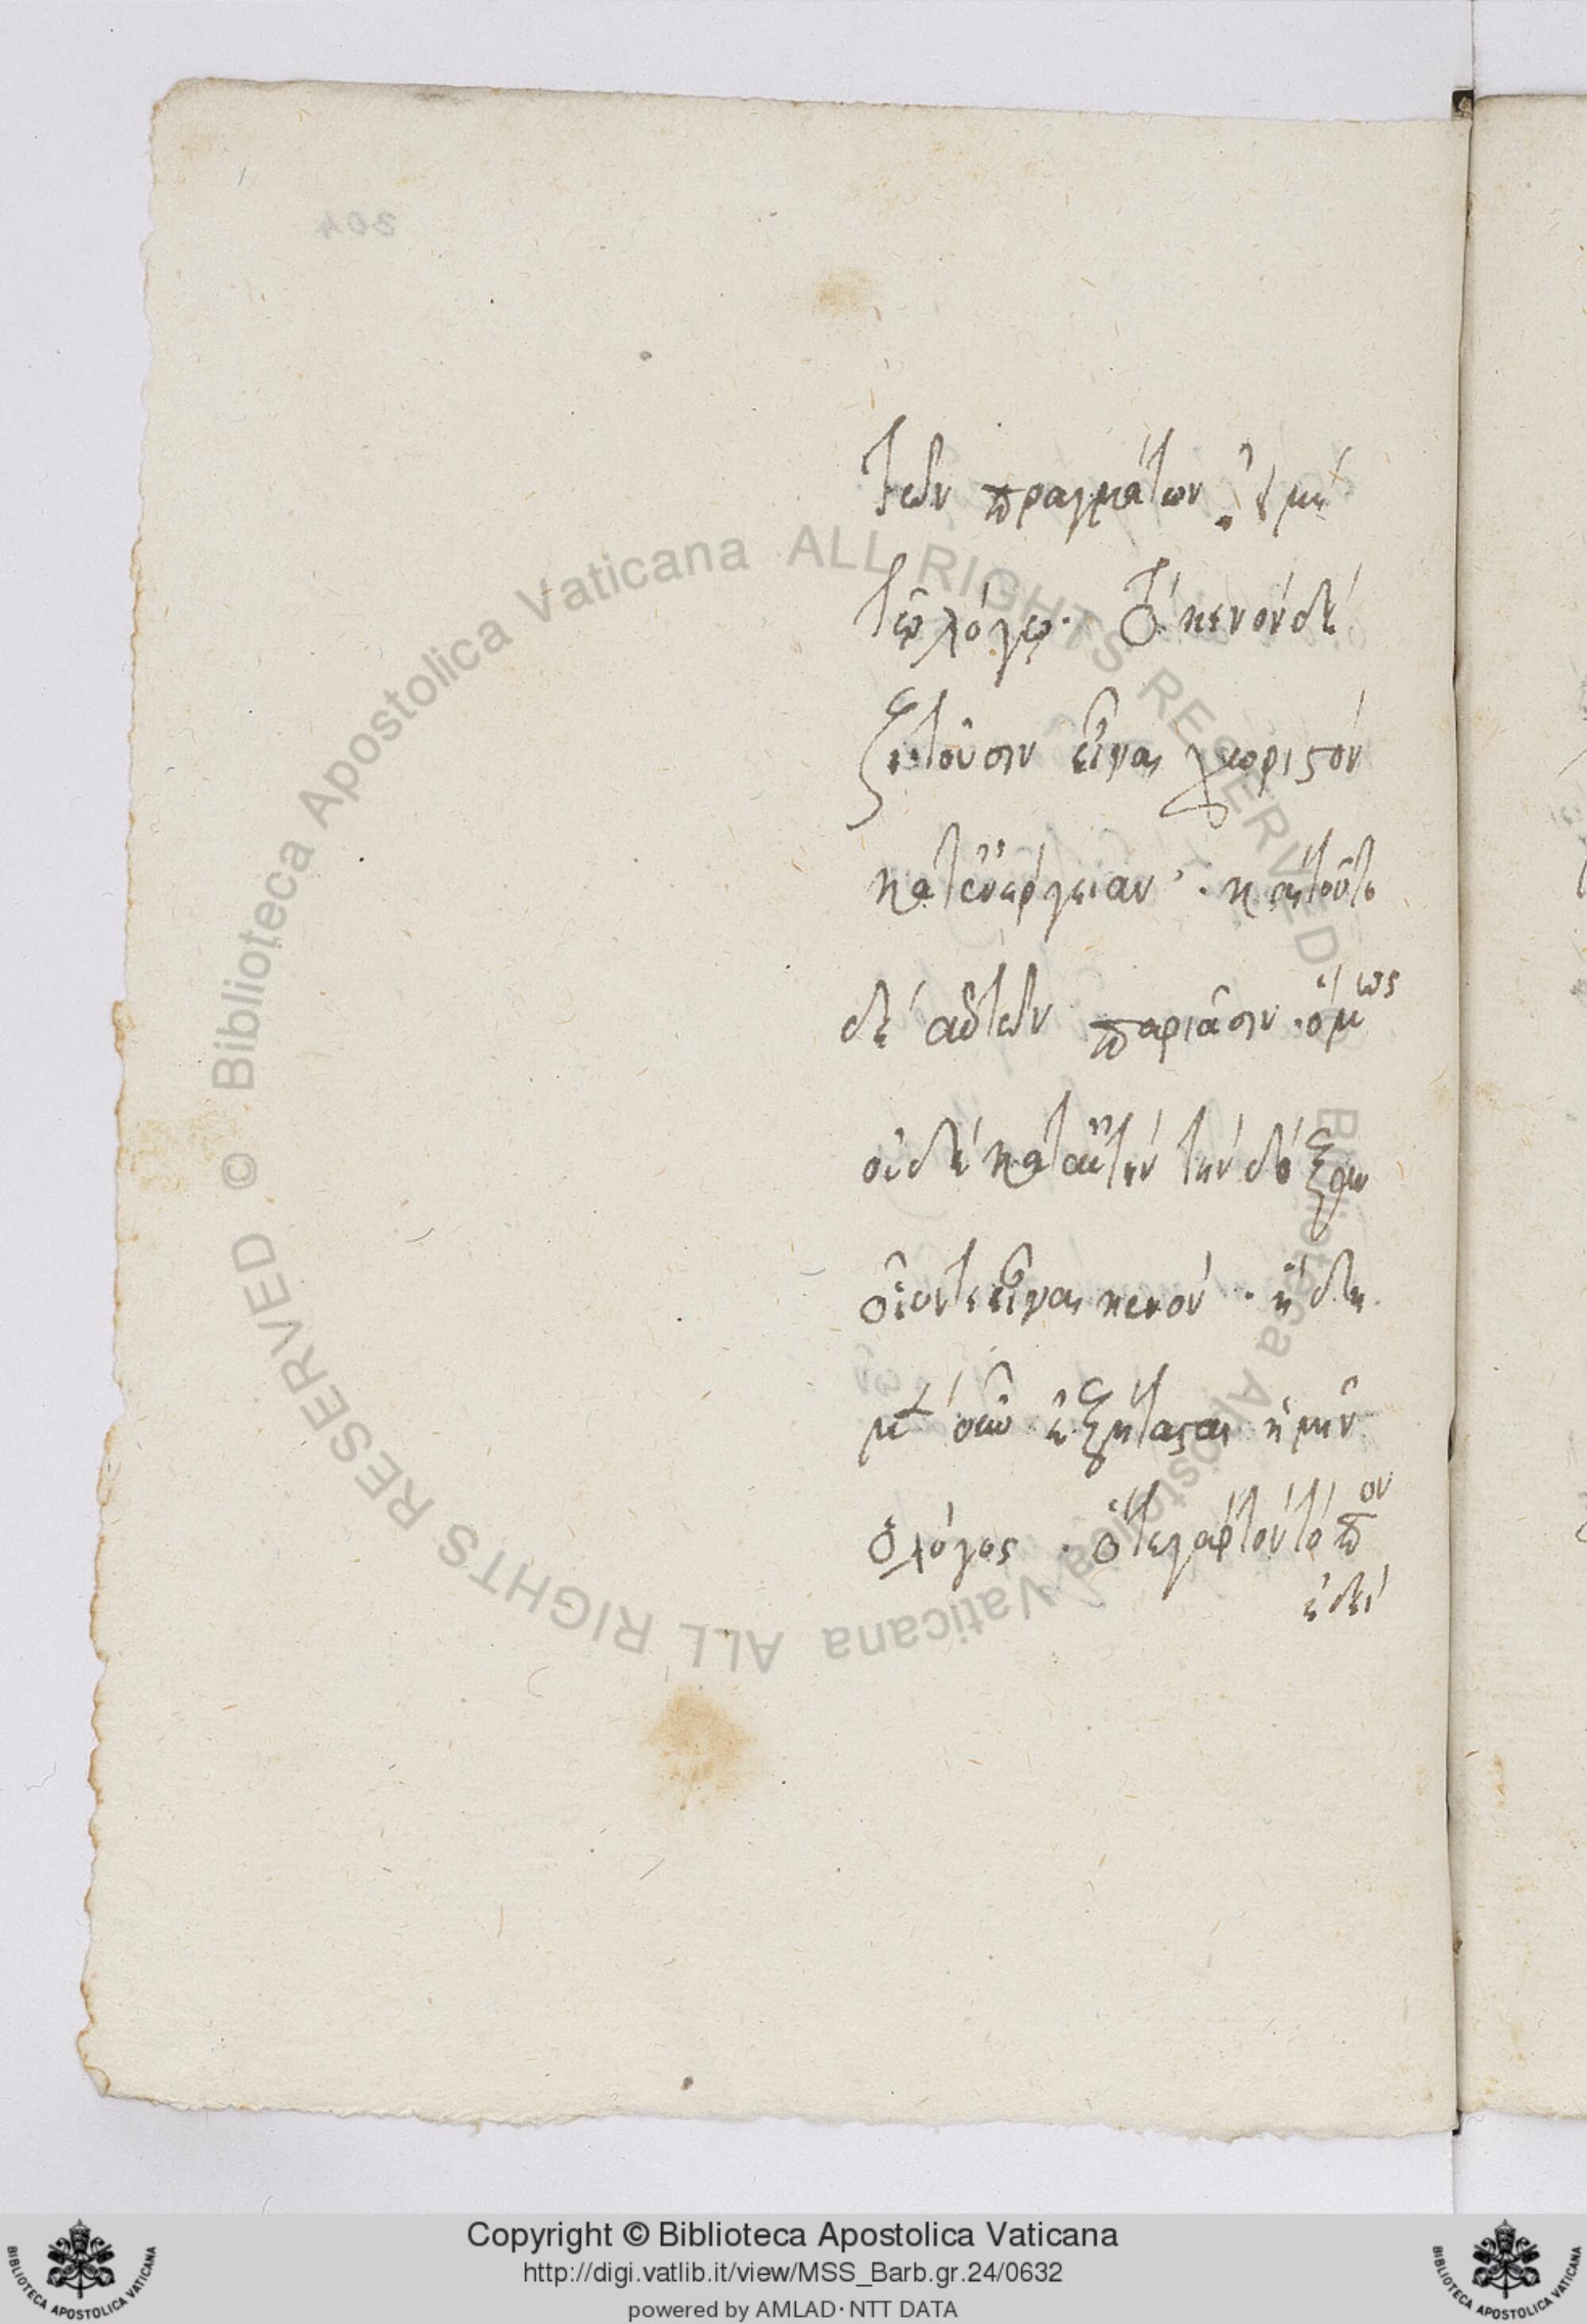 τῶν πραγμάτων, εἰ μὴ
τῷ λόγῳ· τὸ κενὸν δὲ
ζητοῦσιν εἶναι χωριστὸν
κατ' ἐνέργειαν· καὶ τοῦτο
δὲ αὐτῶν παριᾶσιν· ὅμως
οὐδὲ κατ' αὐτὴν τὴν δόξαν
οἷόν τε εἶναι κενόν· ἤδη
μὲν οὖν ἐξήτασται ἡμῖν
ὁ λόγος· ὅτε γὰρ τὸν τόπον
ἐδεί
Copyright © Biblioteca Apostolica Vaticana
http://digi.vatlib.it/view/MSS_Barb.gr.24/0632
powered by AMLAD · NTT DATA
BIBLIOTECA APOSTOLICA VATICANA
BIBLIOTECA APOSTOLICA VATICANA
© Biblioteca Apostolica Vaticana ALL RIGHTS RESERVED
Biblioteca Apostolica Vaticana ALL RIGHTS RESERVED
304